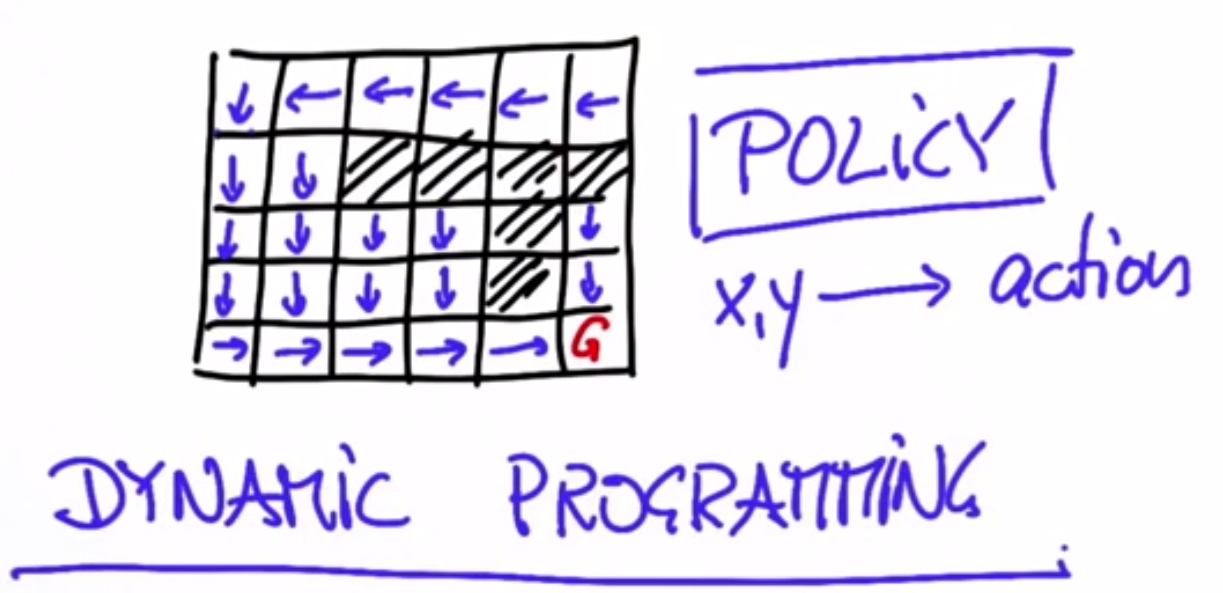 POLiCY
x,y → action
G
DYNAMiC PROGRAMMiNG